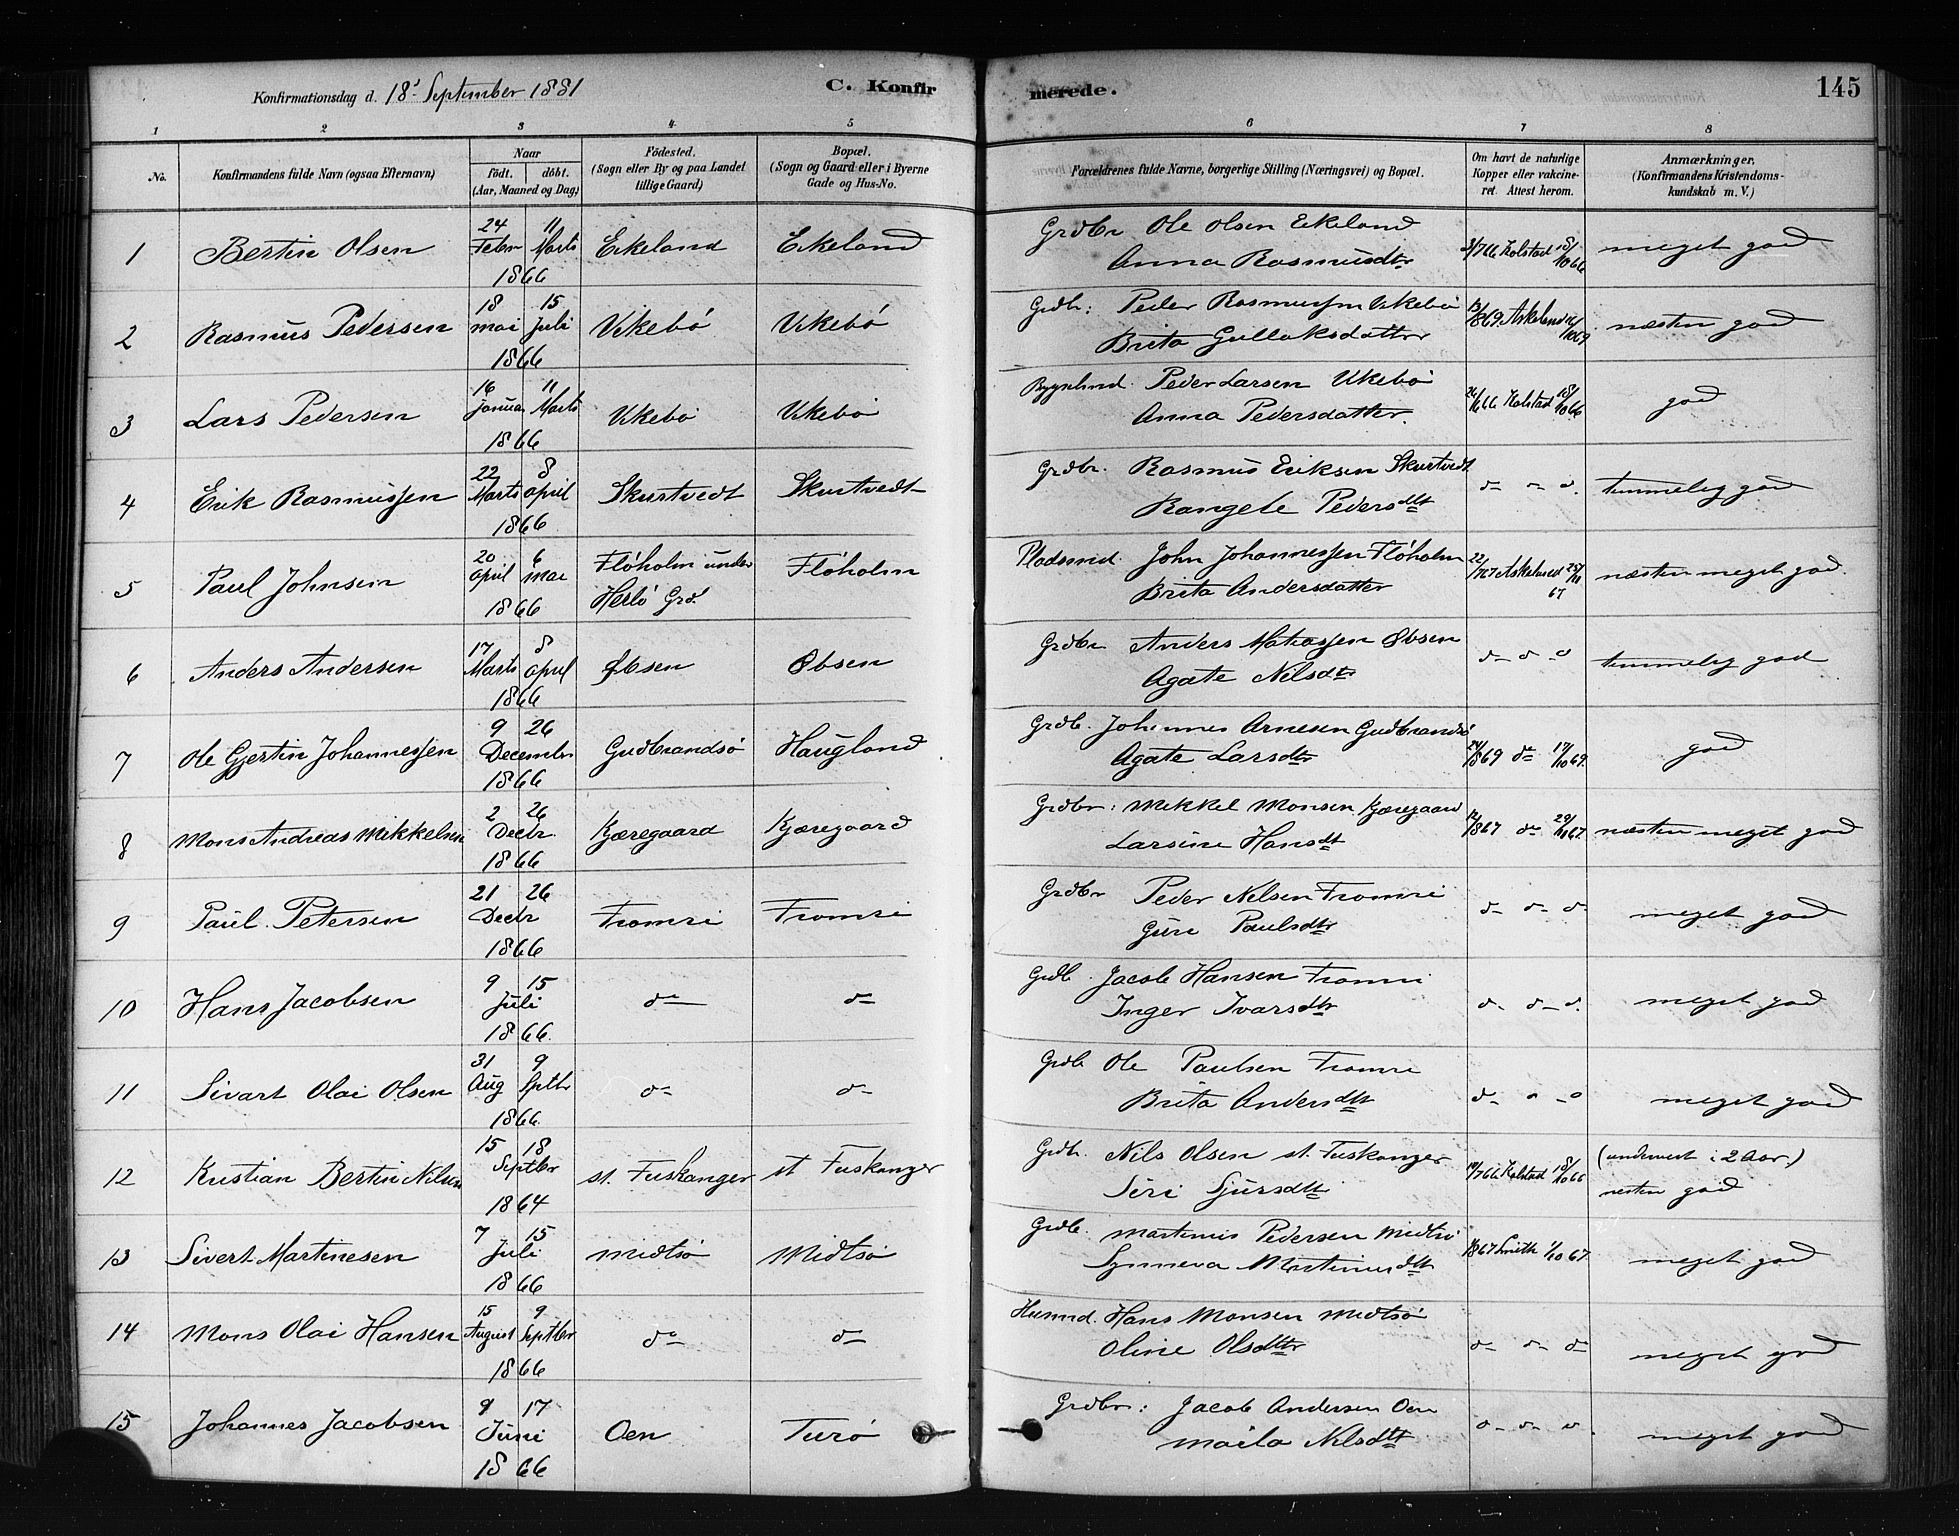 Konfirmationsdag d. 18' September 1881
C. Konfirmerede.
145
1 2 3 4 5 6 7 8
No.
Konfirmandens fulde Navn (ogsaa Efternavn)
Naar
födt. döbt.
(Aar, Maaned og Dag)
Födested.
(Sogn eller By og paa Landet tillige Gaard)
Bopæl.
(Sogn og Gaard eller i Byerne Gade og Hus-No.
Forældrenes fulde Navne, borgerlige Stilling (Næringsvei) og Bopæl.
Om havt de naturlige Kopper eller vakcineret. Attest herom.
Anmærkninger.
(Konfirmandens Kristendomskundskab m. V.)
1 Bertin Olsen 24 Febr 11 Marts 1866 Eikeland Eikeland Grdbr Ole Olsen Eikeland
Anna Rasmusdtr 3/7 66 Kolstad 18/10 66 meget god
2 Rasmus Pedersen 18 mai 15 Juli 1866 Vikebö Vikebö Grdb: Peder Rasmussen Vikebö
Brita Gullaksdatter 13/8 69. Askeland 10 69 næsten god
3 Lars Pedersen 16 Januar 11 Marts 1866 Vikebö Vikebö Peder Larsen Vikebö
Anna Pedersdatter. 26/6 66 Kolstad 18/10 66 god
4 Erik Rasmussen 22 Marts 8 April 1866 Skurtvedt Skurtvedt Grdbr. Rasmus Eriksen Skurtvedt
Pedersdtt d- d- d. temmelig god
5 Paul Johnsen 20 April 6 Mai 1866 Flöholm under Herlö Grd. Flöholm Pladsmd. John Johannessen Flöholm
Brita Andersdatter 22/7 67 Askeland 25/11 67 næsten meget god.
6 Anders Andersen 17 Marts 8 April 1866 Øbsen Øbsen Grdbr Anders Matiassen Øbsen
Agate Nilsdtr d- d- d temmelig god
7 Ole Gjertin Johannessen 9 26 December 1866 Gudbrandsö Haugland Grdb. Johannes Arnesen Gudbrandsö
Agate Larsdtr 24/8 69 do 17/10 69. god
8 Mons Andreas Mikkelsen 2 26 Decbr. 1866 Kjæregaard Kjæregaard Grdbr: Mikkel Monsen Kjæregaard
Larsine Hansdt 8 67 do 29/11 67. næsten meget god
9 Paul Petersen 21 26 Decbr 1866 Fromrei Fromrei Grdbr Peder Nelsen Fromrei
Guri Paulsdtr d- d- d- meget god
10 Hans Jacobsen 9 15 Juli 1866. do d- Grdb. Jacob Hansen Fromrei
Inger Ivarsdtr d- d- d. meget god
11 Sivart Olai Olsen 31 Aug 9 Septbr 1866. d- d- Grdb Ole Paulsen Fromrei
Brita Andersdtt d- d- d meget god
12 Kristian Bertin Nilsen 15 18 Septbr 1864 st. Fuskanger st Fuskanger Grdb. Nils Olsen st. Fuskanger
Siri Sjursdtt 7 66 Kolstad 18/10 66 (undervist i 2 Aar.)
næsten god
13 Sivert Martinesen 7 15 Juli 1866 Midtsö Midtsö Grdb. Martinus Pedersen Midtsö
Synneva Martinusdtt 8 67 Smith 1/10 67. meget god
14 Mons Olai Hansen 15 August 9 Septbr 1866 do d- Husmd. Hans Monsen Midtsö
Oline Olsdtr d- d- d- meget god
15 Johannes Jacobsen 9 17 Juni 1866 Oen Turö Grdbr: Jacob Andersen Oen
Nilsdtt d- d- d. meget god